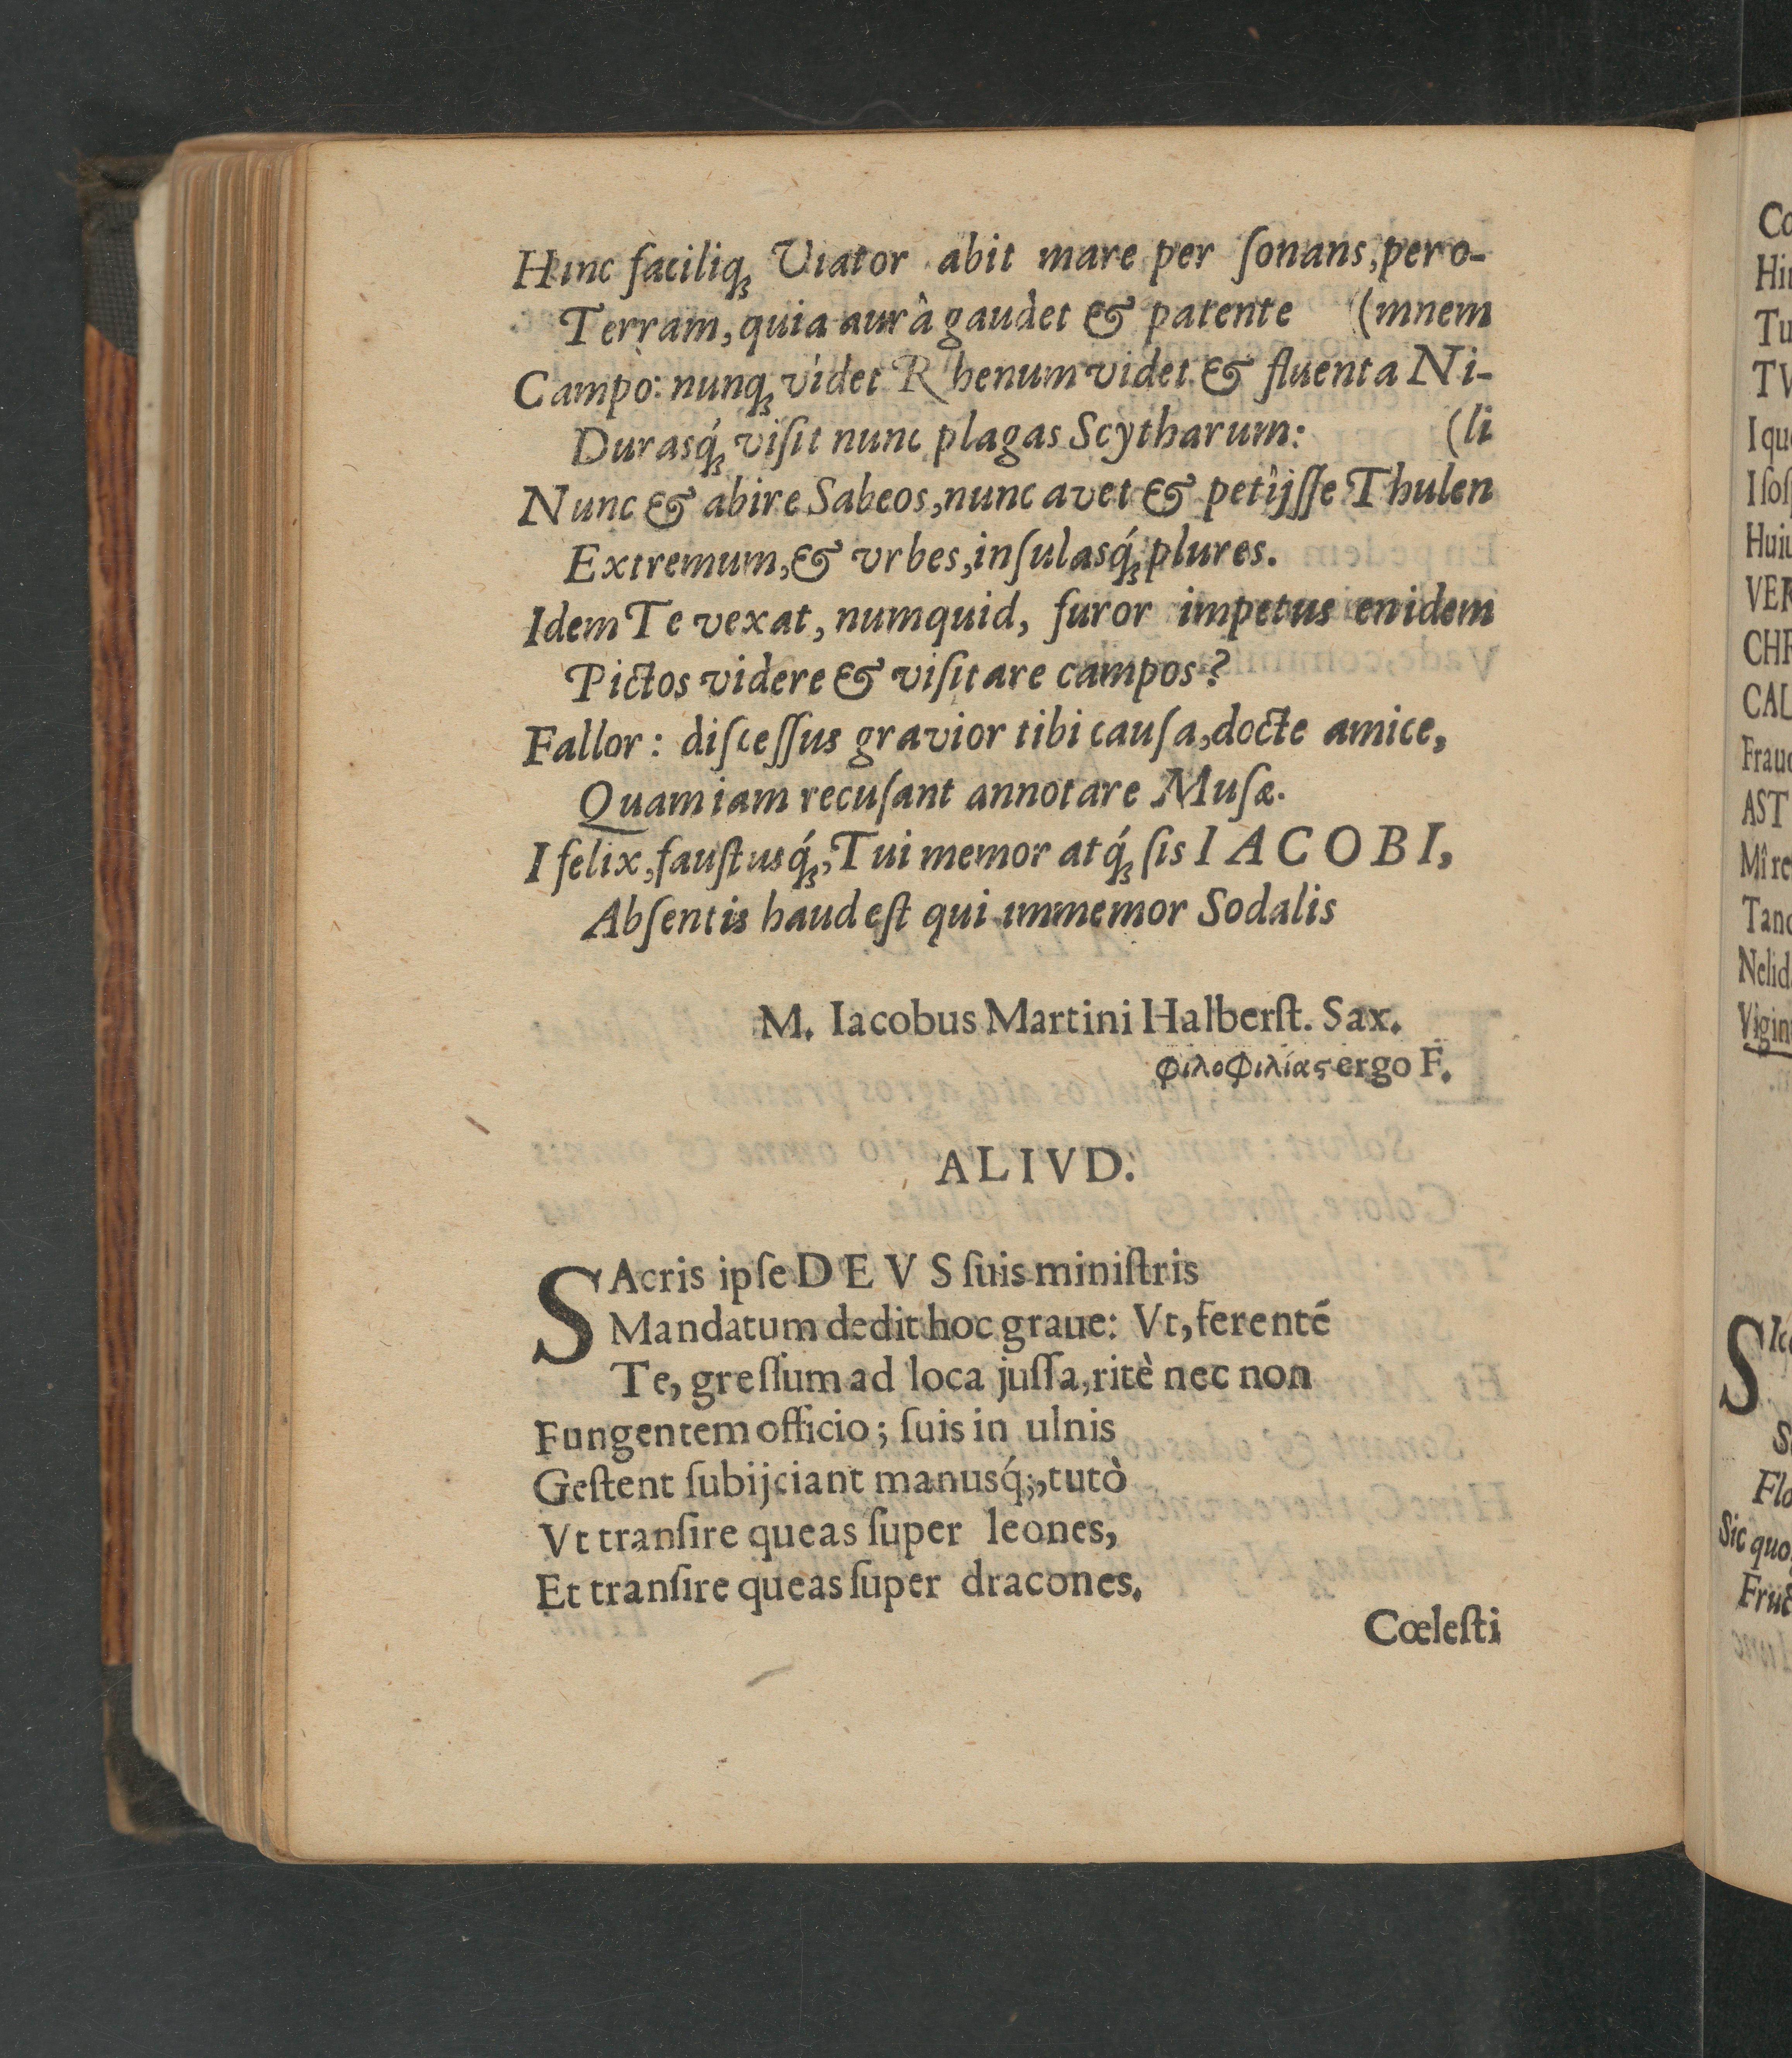 Hinc faciliqꝫ Viator abit mare per ſonans, per o-
Terram, quia aurâ gaudet & patente (mnem
Campo: nunqꝫ videt Rhenum videt & fluenta Ni-
Durasq́ꝫ viſit nunc plagas Scytharum: (li
Nunc & abire Sabeos, nunc avet & petîjſſe Thulen
Extremum, & vrbes, inſulasq́ꝫ plures.
Idem Te vexat, numquid, furor impetus en idem
Pictos videre & viſitare campos?
Fallor: diſceſſus gravior tibi cauſa, docte amice,
Quam iam recuſant annotare Muſæ.
I felix, fauſtusq́ꝫ, Tui memor atq́ꝫ ſis IACOBI,
Abſentis haud eſt qui immemor Sodalis
M. Iacobus Martini Halberſt. Sax.
φιλοφιλίας ergo F.
ALIVD.
SAcris ipſe DEVS ſuis miniſtris
Mandatum dedit hoc graue: Vt, ferenté
Te, greſſum ad loca juſſa, ritè nec non
Fungentem officio; ſuis in ulnis
Geſtent ſubijciant manusq́;, tutò
Vt tranſire queas ſuper leones,
Et tranſire queas ſuper dracones.
Cœleſti
Hi
Tu
I
Huiu
VER
CHR
CAL
Frau
AST
Mî re
Tan
Nelid
Vigin
S
Flo
Sic quo